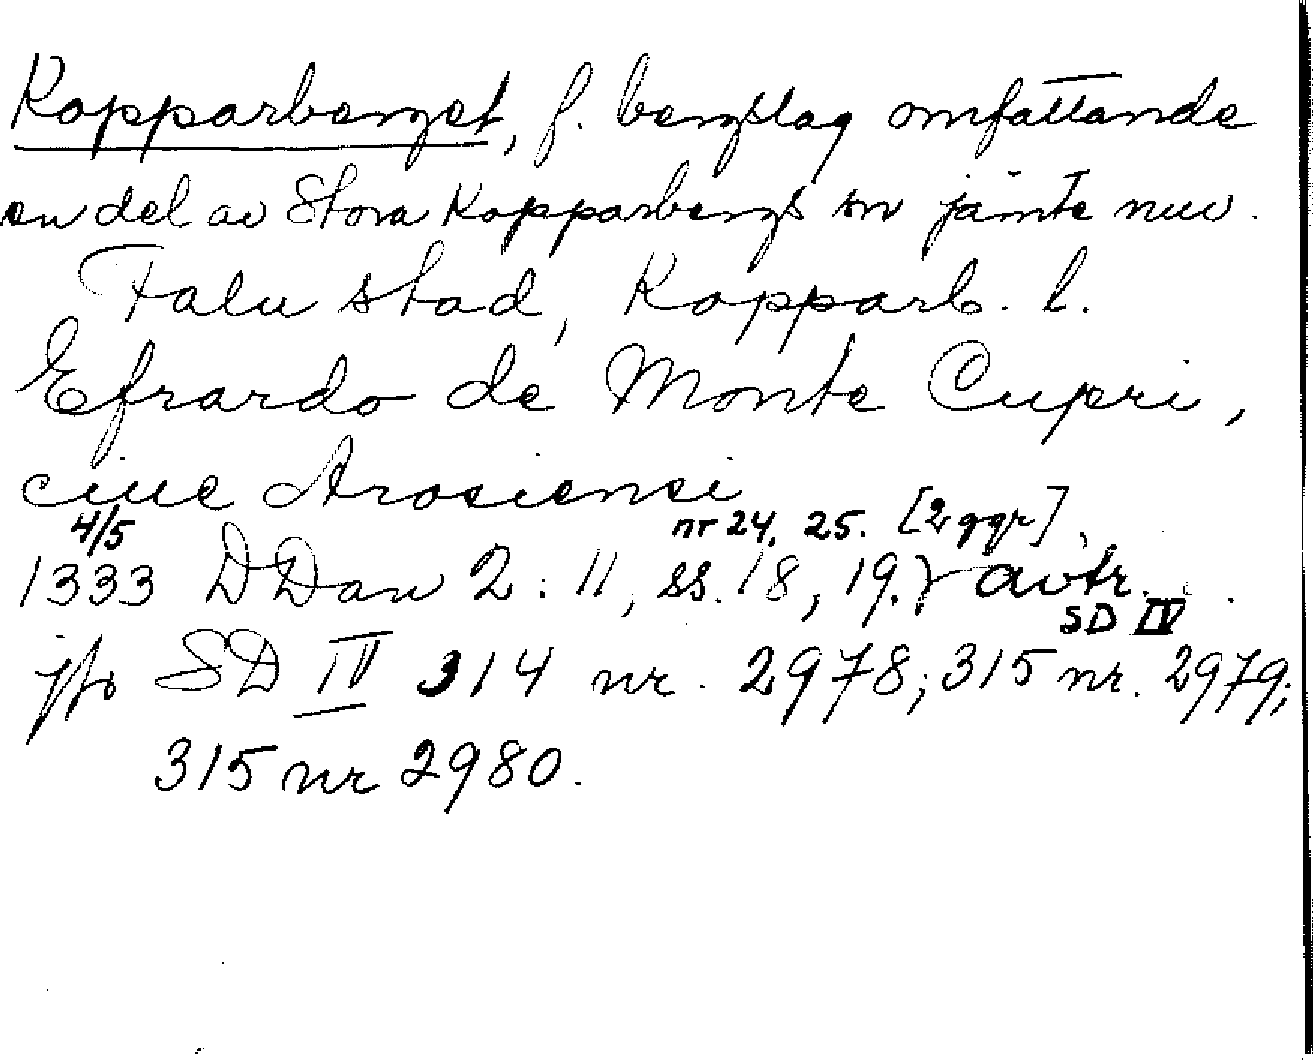 Kopparberget, f. bergslag omfattande
en del av Stora Kopparbergs sn jämte nuv.
Falu stad, Kopparb. l.
Efrardo de Monte Cupri,
ciue Arosiensi
4/5 nr 24, 25. [2 ggr],
1333 DDan 2: 11, ss. 18, 19. avtr.
SD IV
jfr SD IV 314 nr. 2978; 315 nr. 2979;
315 nr 2980.